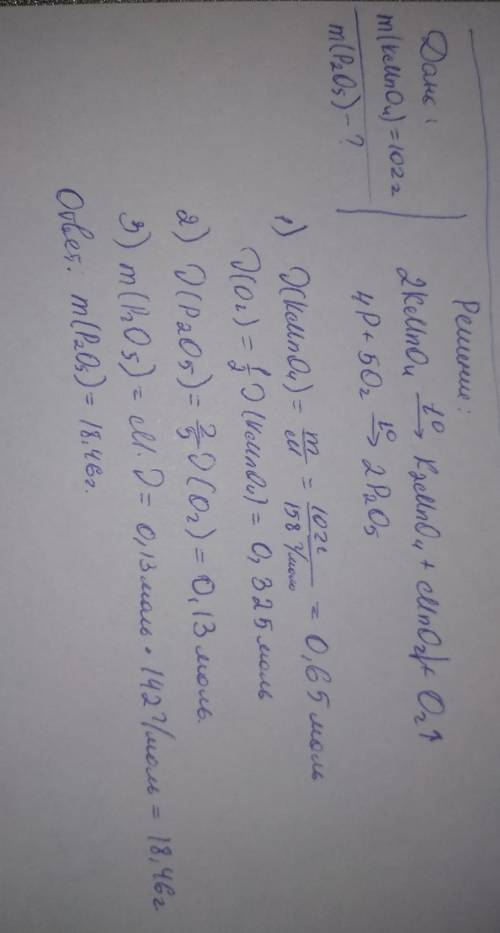 Дано:
m(KMnO₄) = 102 г
m(P₂O₅) - ?
Решение:
2KMnO₄ t° → K₂MnO₄ + MnO₂ + O₂↑
4P + 5O₂ t° → 2P₂O₅
1) ν(KMnO₄) = m/M = 102г/158 г/моль = 0,65 моль
ν(O₂) = 1/2 ν(KMnO₄) = 0,325 моль
2) ν(P₂O₅) = 2/5 ν(O₂) = 0,13 моль.
3) m(P₂O₅) = M · ν = 0,13 моль · 142 г/моль = 18,46г
Ответ: m(P₂O₅) = 18,46г.